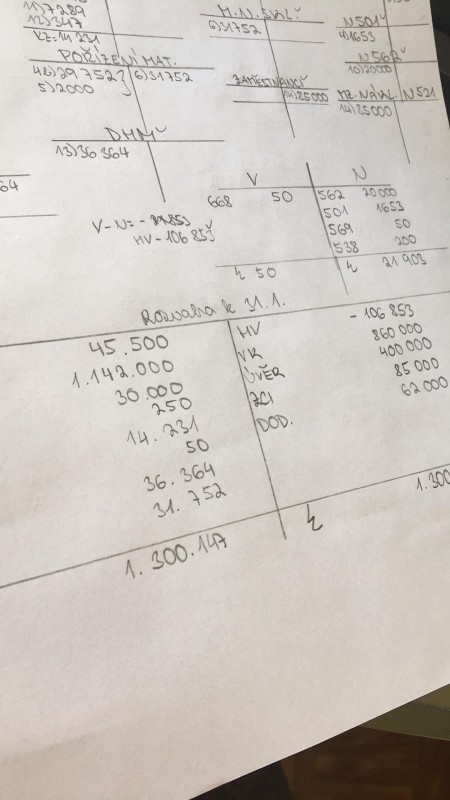 11) 7289
12) 347
KZ: 14 231
M.N. SKL.
6) 31752
N 501
4) 1653
N 562
10) 20000
POŘÍZENÍ MAT.
4a) 29 752
5) 2000
6) 31752
ZAMĚSTNANCI
14) 85000
MZ. NÁKL. N 521
14) 85000
DHM
13) 36 364
64
V
N
668 50
562 20000
501 1653
569 50
538 200
Σ 50
Σ 21 903
HV -106 853
Rozvaha k 31.1.
45.500
1.142.000
30.000
250
14. 231
50
36. 364
31. 752
1. 300.147
HV - 106 853
VK 860 000
ÚVĚR 400 000
ZCI 85 000
DOD. 62 000
Σ 1.300